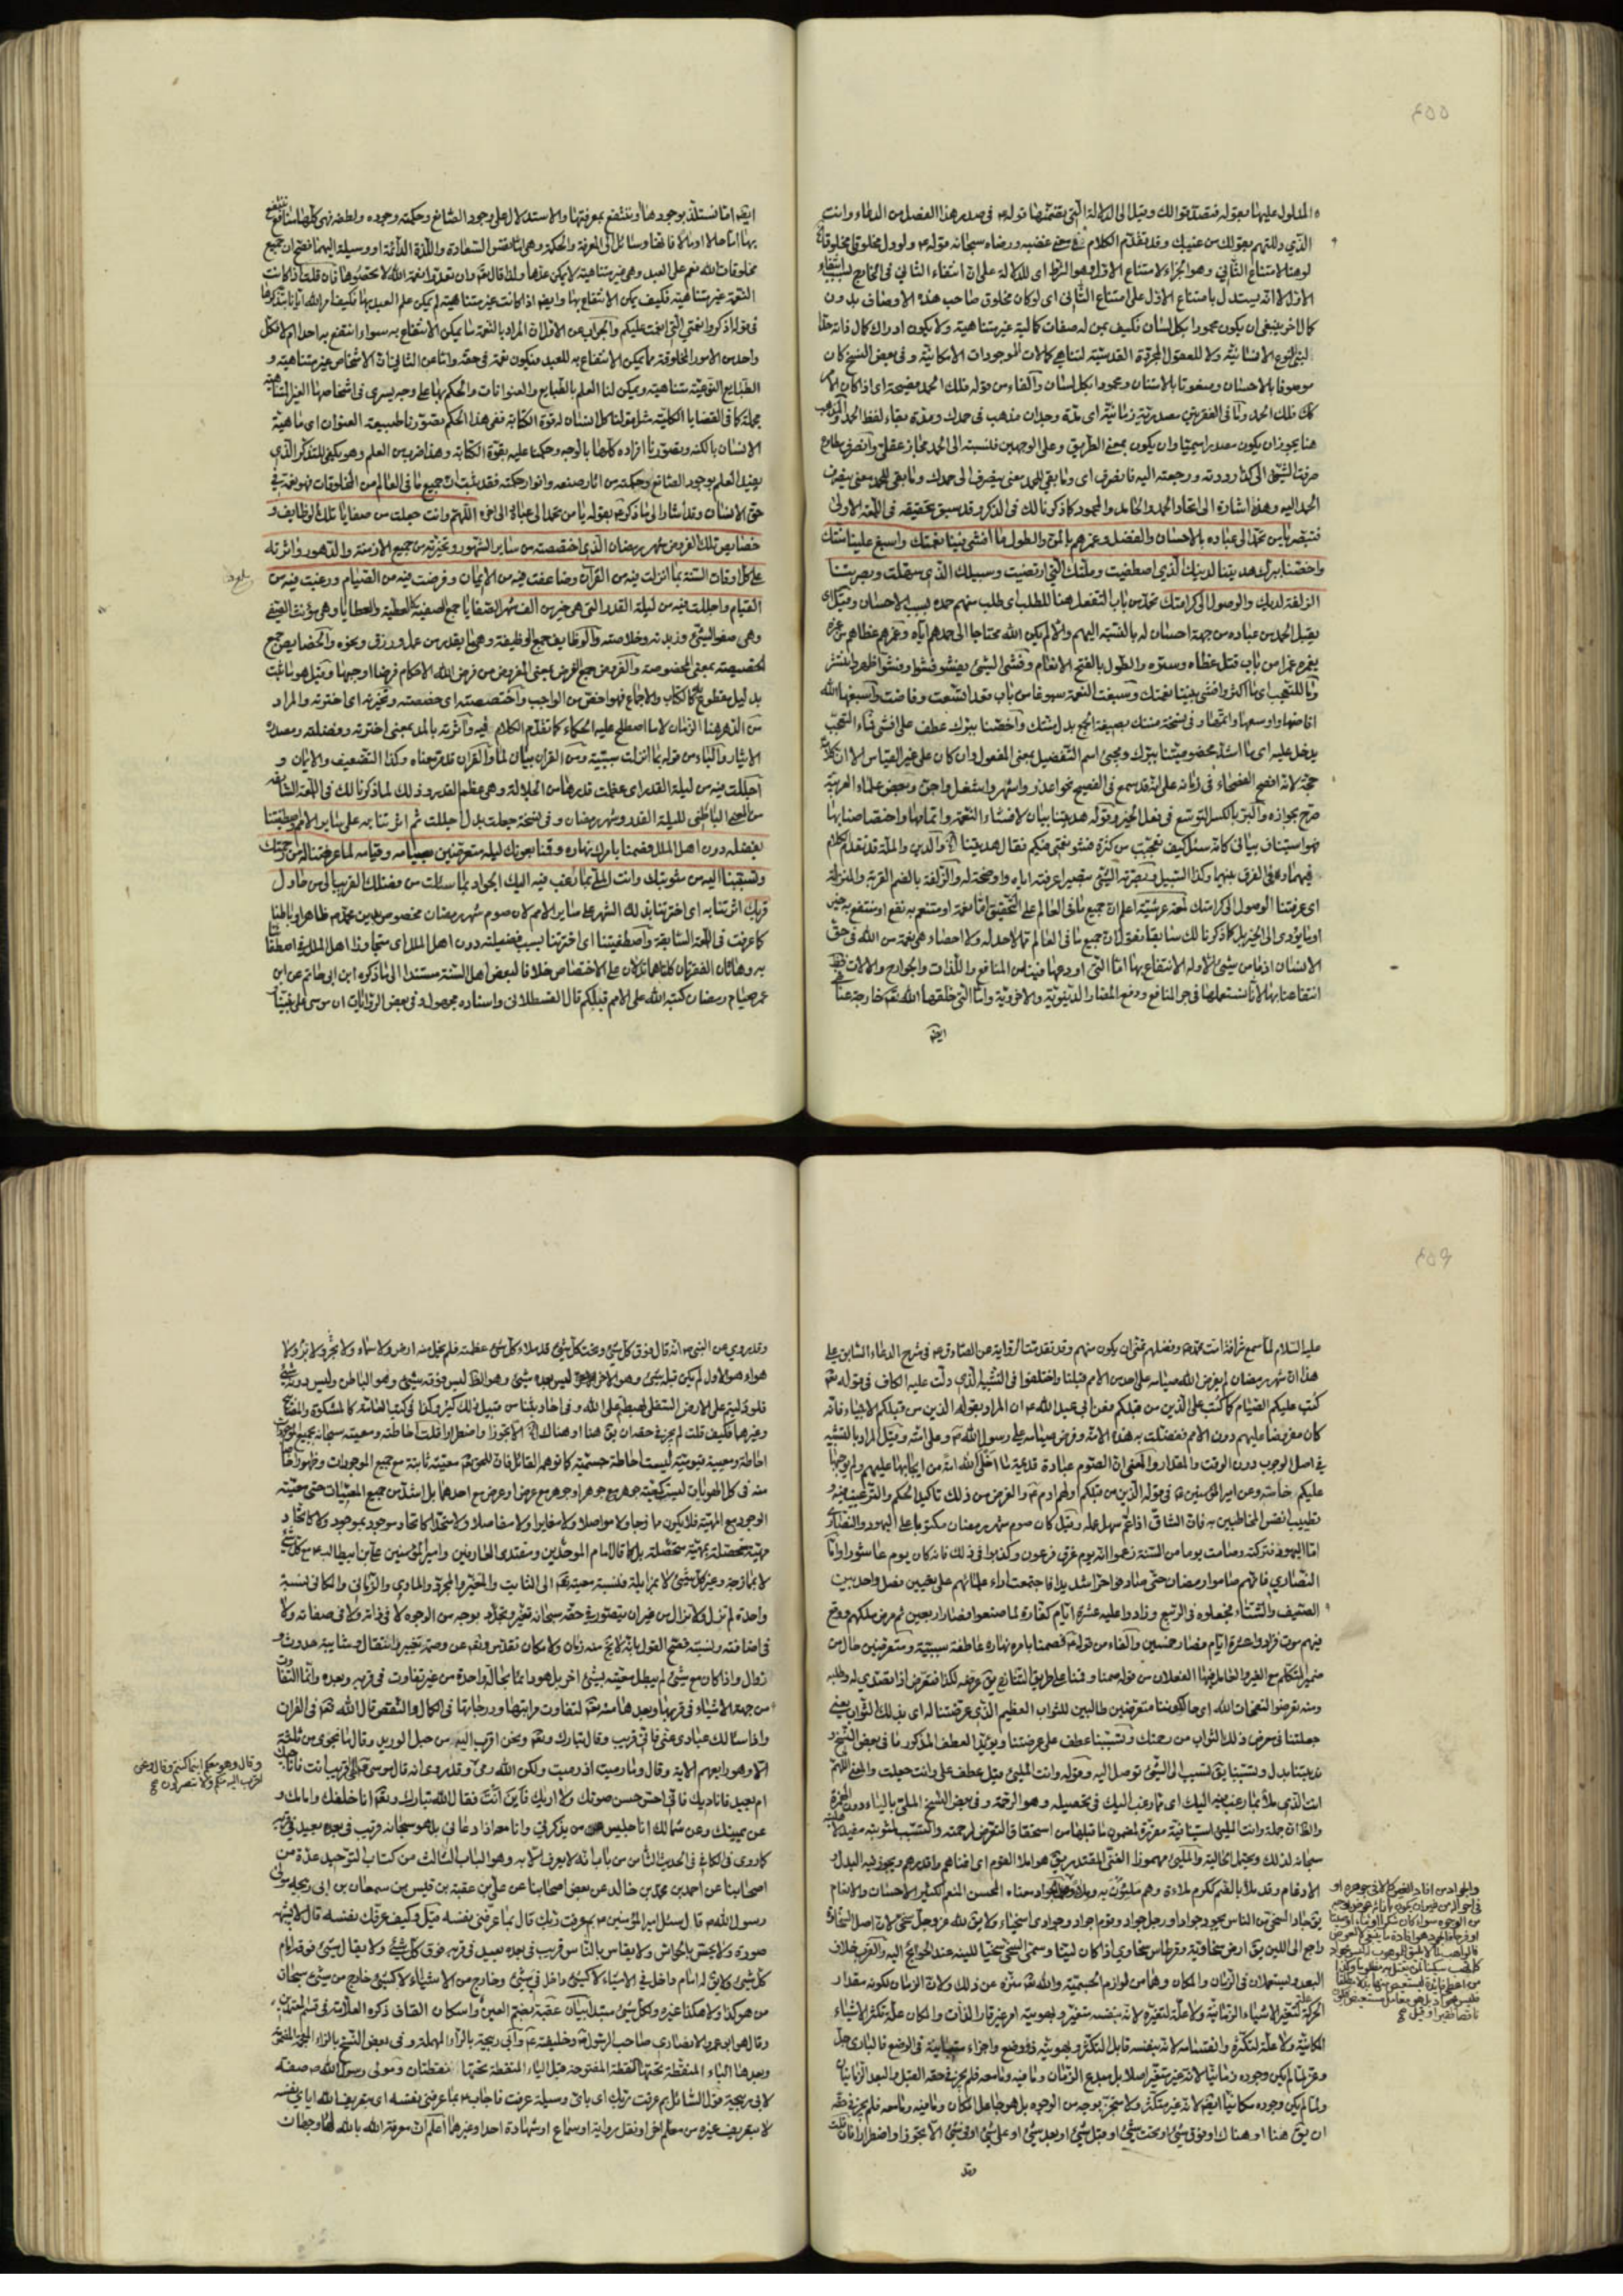 ٤٥٥
المدلول عليها بقوله فتصدقوا لك وقيل الى الدلالة التي يتضمنها قوله في صدر هذا الفصل من الدعاء وانت
الذي دللتهم بقولك من غيبك وقد تقدم الكلام في معنى غضبه ورضاه سبحانه قوله ولو دل مخلوق مخلوقا
لو هنا لامتناع الثاني وهو الجزاء لامتناع الاول وهو الشرط اى للدلالة على ان انتفاء الثاني في الخارج بسبب انتفاء
الاول لا انه يستدل بامتناع الاول على امتناع الثاني اى لو كان مخلوق صاحب هذه الاوصاف بدون
كمال اخر ينبغي ان يكون محمودا بكل لسان فكيف بمن له صفات كمالية غير متناهية ولا يكون ادراك كمال ذاته
لبني النوع الانسانية ولا للعقول المجردة القدسية لتناهي كمالات الموجودات الامكانية وفي بعض النسخ كان
موصوفا بالاحسان ومنعوتا بالامتنان ومحمودا بكل لسان والفاء من قوله فلك الحمد فصيحة اى اذا كان الامر
كك فلك الحمد وما في الفقرتين مصدرية زمانية اى مدة وجدان مذهب في حمدك ومدة بقاء لفظ الحمد والمذهب
هنا يجوز ان يكون مصدرا ميميا وان يكون بمعنى الطريق وعلى الوجهين فنسبته الى الحمد مجاز عقلي وانصرف مطاوع
صرفت الشيء الى كذا رددته ورجعته اليه فانصرف اى وما بقي للحمد معنى ينصرف الى حمدك وما بقي للحمد معنى يصرف
الحمد اليه وهذه اشارة الى اتحاد الحمد والحامد والمحمود كما ذكرنا لك في الذكر وقد سبق تحقيقه في اللمعة الاولى
فتبصر يا من تحمد الى عباده بالاحسان والفضل وغمرهم بالمن والطول ما افشى فينا نعمتك واسبغ علينا منتك
واخصنا ببرك هديتنا لدينك الذي اصطفيت وملتك التي ارتضيت وسبيلك الذي سهلت وبصرتنا
الزلفة لديك والوصول الى كرامتك تحمد من باب التفعل هنا للطلب اى طلب منهم حمده بسبب الاحسان وقيل اى
يقبل الحمد من عباده من جهة احسان له بالنسبة اليهم والا لم يكن الله محتاجا الى حمدهم اياه وغمرهم غطاهم من غمره
يغمره غمرا من باب قتل غطاه وستره والطول بالفتح الانعام وفشى الشيء يفشو فشوا وفشوا ظهر وانتشر
وما للتعجب اى ما اكثر وافشى بيننا نعمتك وسبغت النعمة سبوغا من باب قعد اتسعت وفاضت واسبغها الله
افاضها واوسعها واتمها وفي نسخة مننك بصيغة الجمع بدل منتك واخصنا ببرك عطف على افشى فماء التعجب
يدخل عليه اى ما اشد مخصوصيتنا ببرك ومجيئ اسم التفضيل بمعنى المفعول وان كان على غير القياس الا ان كلامه
حجة لانه افصح الفصحاء في زمانه على انه قد سمع في الفصيح نحو اعذر واشهر واشغل واجن وبعض علماء العربية
صرح بجوازه والبر بالكسر التوسع في فعل الخير وقوله هديتنا بيان لافشاء النعمة واتمامها واختصاصنا بها
فهو استيناف بياني كانه سئل كيف تعجبت من كثرة فشو نعمتي منكم فقال هديتنا الخ والدين والملة قد تقدم الكلام
فيهما وفي الفرق بينهما وكذا السبيل وبصرته الشيء تبصيرا عرفته اياه واوضحته له والزلفة بالضم القربة والمنزلة
اى عرفتنا الوصول الى كرامتك لمعة عرشية اعلم ان جميع ما في العالم على التحقيق اما نعمة او متنعم به نفع او ينتفع به حين
او ما يؤدى الى الخير بل كما ذكرنا لك سابقا نقول ان جميع ما في العالم مما لا حد له ولا احصاء هي نعمة من الله في حق
الانسان اذ ما من شيء الا وله الانتفاع بها اما التي اودعها فينا من المنافع واللذات والجوارح والالات
انتفاعنا بها لانا نستعملها في جر المنافع ودفع المضار الدنيوية والاخروية واما التي خلقها الله تعالى خارجة عنا
ايضا
ايضا امّا نستلذ بوجودها او ننتفع بمعرفتها والاستدلال على وجود الصانع وحكمته وجوده ولطفه فهى كلها منافع
مخلوقات الله نعم على العبد وهي غير متناهية لا يمكن عدها ولذا قال تعالى وان تعدوا نعمة الله لا تحصوها فان قلت اذا كانت
النعمة غير متناهية فكيف يمكن الانتفاع بها وايضا اذا كانت غير متناهية لم يمكن علم العبد بها فكيف امر الله ايانا بتذكرها
في قوله اذكروا نعمتي التي انعمت عليكم والجواب عن الاول ان المراد بالنعمة ما يمكن الانتفاع به سواء انتفع به احد ام لا فكل
واحد من الامور المخلوقة مما يمكن الانتفاع به للعبد فيكون نعمة في حقه واما عن الثاني فان الاشخاص غير متناهية و
الطبايع النوعية متناهية ويمكن لنا العلم بالطبايع والعنوانات والحكم بها على وجه يسرى في اشخاصها الغير المتناهية
مجملة كما في القضايا الكلية مثل قولنا كل انسان له قوة الكتابة ففي هذا الحكم تصورنا طبيعة العنوان اى ماهية
الانسان بالكنه وتصورنا افراده كلها بالوجه وحكمنا عليه بقوة الكتابة وهذا ضرب من العلم وهو يكفي للتذكر الذي
يفيد العلم بوجود الصانع وحكمته من اثار صنعه وانوار حكمته فقد ثبت ان جميع ما في العالم من المخلوقات فهو نعمة في
حق الانسان وقد اشار الى ما ذكره بقوله يا من تحمد الى عباده الى اخره اللهم وانت جعلت من صفايا تلك الوظايف و
خصايص تلك الفروض شهر رمضان الذي اختصصته من ساير الشهور وتخيرته من جميع الازمنة والدهور واثرته
على كل اوقات السنة بما انزلت فيه من القرآن وضاعفت فيه من الايمان وفرضت فيه من الصيام ورغبت فيه من
القيام واجللت فيه من ليلة القدر التي هي خير من الف شهر الصفايا جمع الصفية كالعطية والعطايا وهي مؤنث الصفي
وهي صفو الشيء وزبدته وخلاصته والوظايف جمع الوظيفة وهي ما يقدر من عمل ورزق ونحوه والخصايص جمع
الخصيصة بمعنى المخصوصة والفروض جمع الفرض بمعنى المفروض من فرض الله الاحكام فرضا اوجبها وقيل هو ما ثبت
بدليل مقطوع كالكتاب والاجماع فهو اخص من الواجب واختصصته اى خصصته وتخيرته اى اخترته والمراد
من الدهر هنا الزمان لا ما اصطلح عليه الحكماء كما تقدم الكلام فيه واثرته بالمد بمعنى اخترته وفضلته ومصدره
الايثار والباء من قوله بما انزلت سببية ومن القرآن بيان لما والقرآن قد مر معناه وكذا التضعيف والايمان و
اجللت فيه من ليلة القدر اى عظمت قدرها من الجلالة وهي عظم القدر وذلك لما ذكرنا لك في اللمعة السابقة
من المعنى الباطني لليلة القدر وشهر رمضان وفي نسخة جعلت بدل اجللت ثم اثرتنا به على سائر الامم واصطفيتنا
بفضله دون اهل الملل فصمنا بامرك نهاره وقمنا بعونك ليله متعرضين بصيامه وقيامه لما عرضتنا له من رحمتك
وتسببنا اليه من مثوبتك وانت الملئ بما رغب فيه اليك الجواد بما سئلت من فضلك القريب الى من حاول
قربك اثرتنا به اى اخترتنا بذلك الشهر على ساير الامم لان صوم شهر رمضان مخصوص بدين محمد ص ظاهرا وباطنا
كما عرفت في اللمعة السابقة واصطفيتنا اى اخترتنا بسبب فضيلته دون اهل الملل اى متجاوزا اهل الملل في اصطفائنا
به وهاتان الفقرتان كلتاهما تدلان على الاختصاص خلافا لبعض اهل السنة مستندا الى ما ذكره ابن ابي حاتم عن ابن
عمر صيام رمضان كتبه الله على الامم قبلكم قال القسطلاني واسناده مجهول وفي بعض الروايات ان موسى على نبينا
٤٥٦
عليه السلام لما سمع شرافة امت محمد وفضلهم تمنى ان يكون منهم وقد تقدمت الرواية عن الصادق في شرح الدعاء السابق على
هذا ان شهر رمضان لم يفرض الله صيامه على احد من الامم قبلنا واختلفوا في التشبيه الذي دلت عليه الكاف في قوله تعالى
كتب عليكم الصيام كما كتب على الذين من قبلكم فعن ابي عبد الله ان المراد بقوله الذين من قبلكم الانبياء فانه
كان مفروضا عليهم دون الامم ففضلت به هذه الامة وفرض صيامه على رسول الله ص وعلى امته وقيل المراد بالتشبيه
في اصل الوجوب دون الوقت والمقدار والمعنى ان الصوم عبادة قديمة ما اخلى الله امة من ايجابها عليهم ولم يوجبها
عليكم خاصة وعن امير المؤمنين في قوله الذين من قبلكم اولهم ادم والغرض من ذلك تاكيد الحكم والترغيب فيه و
تطييب انفس المخاطبين به فان الشاق اذا عم سهل عمله وقيل كان صوم شهر رمضان مكتوبا على اليهود والنصارى
اما اليهود فتركته وصامت يوما من السنة زعموا انه يوم غرق فرعون وكذبوا في ذلك فانه كان يوم عاشورا واما
النصارى فانهم صاموا رمضان حتى صادفوا حرا شديدا فاجتمعت اراء علمائهم على تعيين فصل واحد بين
الصيف والشتاء فجعلوه في الربيع وزادوا عليه عشرة ايام كفارة لما صنعوا فصار اربعين ثم مرض ملكهم ووقع
فيهم موت فزادوا عشرة ايام فصار خمسين والفاء من قوله فصمنا بامره نهاره عاطفة سببية ومتعرضين حال من
ضمير المتكلم مع الغير والعامل فيها الفعلان من قوله صمنا وقمنا على طريق التنازع يق عرضه لكذا فتعرض اذا تصدى له وطلبه
ومنه تعرضوا لنفحات الله اى حالكوننا متعرضين طالبين للثواب العظيم الذي عرضتنا له اى بذلك الثواب يعني
جعلتنا في معرض ذلك الثواب من رحمتك وتسببنا عطف على عرضتنا ويؤيد العطف المذكور ما في بعض النسخ و
ندبتنا بدل وتسببنا يق تسبب الى الشيء توصل اليه وقوله وانت الملئ قيل عطف على وانت جعلت والمعنى اللهم
انت الذي ملأ بما رغب فيه اليك اى بما رغب اليك في تحصيله وهو الرحمة وفي بعض النسخ الملي بالياء دون الهمزة
والظ ان جملة وانت الملئ استينافية مقررة لمضمون ما قبلها من استحقاق التعرض لرحمته والتسبب لمثوبته مفيد
سبحانه لذلك ويحتمل الحالية والملئ مهموزا الغني المقتدر يق هو املأ القوم اى اغناهم واقدرهم ويجوز فيه البدل و
الادغام وقد ملأ بالضم ككرم ملاءة وهم مليئون به والجواد معناه المحسن المنعم الكثير الاحسان والانعام
يق جاد السخي من الناس يجود جوادا ورجل جواد وقوم اجواد وجودى اسخياء ولا يق لله عز وجل سخي لان اصل السخاوة
راجع الى اللين يق ارض سخاوية وقرطاس سخاوى اذا كان لينا وسمى السخي سخيا للينه عند الحوايج اليه والقرب خلاف
البعد ويستعملان في الزمان والمكان وهما من لوازم الجسمية والله تعالى منزه عن ذلك ولان الزمان لكونه مقدار
الحركة علة تغير الاشياء الزمانية ولا علة لتغيره لانه بنفسه متغير وهويته امر غير قار الذات والمكان علة تكثر الاشياء
المكانية ولا علة لتكثره وانقسامه لانه بنفسه قابل للتكثر وهويته ذو وضع واجزاء متباينة في الوضع فالبارى جل
وعز لما لم يكن وجوده زمانيا لانه غير متغير اصلا بل مبدع الزمان وما فيه وما معه فلم يجز في حقه القبل والبعد الزمانيان
ولما لم يكن وجوده مكانيا ايضا لانه غير متكثر ولا متجز بوجه من الوجوه بل هو جاعل المكان وما فيه وما معه فلم يجز في حقه
ان يق هنا او هناك او فوق شيء او تحت شيء او قبل شيء او بعد شيء او على شيء او في شيء الا تجوزا واضطرارا فان قلت
وقد
وقد روى عن النبي ص انه قال فوق كل شيء وتحت كل شيء قد ملاء كل شيء عظمته فلم يخل منه ارض ولا سماء ولا بحر ولا بر ولا
هواء هو الاول لم يكن قبله شيء وهو الاخر ليس بعده شيء وهو الظاهر ليس فوقه شيء وهو الباطن وليس دونه شيء
فلو دليتم على الارض السفلى لهبط على الله وفي احاديثنا من قبيل ذلك كثير وكذا في كتب العامة كالمشكوة والمفتح
وغيرهما فكيف قلت لم يجز في حقه ان يق هنا او هناك الخ الا تجوزا واضطرارا قلت احاطته ومعيته سبحانه بجميع الموجودات
احاطة ومعية قيومية ليست احاطة جسمية كما توهمه القائل فان للحق تعالى معية ثابتة مع جميع الموجودات وظهورا خاصا
منه في كل الهويات ليست كمعية جوهر مع جوهر او جوهر مع عرض او عرض مع احدهما بل اشد من جميع المعيات حتى معية
الوجود مع المهية فلا يكون ممازجا ولا مواصلا ولا مغايرا ولا مفاصلا ولا متحدا كاتحاد موجود بموجود ولا كاتحاد
مهية متحصلة بمهية متحصلة بل كما قال امام الموحدين ومقتدى العارفين وامير المؤمنين علي بن ابيطالب مع كل شيء
لا بممازجة وغير كل شيء لا بمزايلة فنسبة معيته تعالى الى الثابت والمتغير والمجرد والمادي والزماني والمكاني نسبة
واحدة لم تزل ولا تزال من غير ان يتصور في حقه سبحانه تغير وتجدد بوجه من الوجوه لا في ذاته ولا في صفاته ولا
في اضافته ونسبته فصح القول بانه لا يخ منه زمان ولا مكان تقدس وتعالى عن وصمة تغير وانتقال وشايبة حدوث و
زوال واذا كان مع شيء لم يبطل معيته بشيء اخر بل هو دائما بحالة واحدة من غير تفاوت في قربه وبعده وانما التفاوت
من جهة الاشياء في قربها وبعدها منه تعالى لتفاوت مراتبها ودرجاتها في الكمال والنقص قال الله تعالى في القرآن
واذا سالك عبادى عني فاني قريب وقال تبارك وتعالى ونحن اقرب اليه من حبل الوريد وقال ما يكون من نجوى ثلثة
الا وهو رابعهم الاية وقال وما رميت اذ رميت ولكن الله رمى وقد روى انه قال موسى اقريب انت فاناجيك
ام بعيد فاناديك فاني احس حسن صوتك ولا اريك فاين انت فقال الله تبارك وتعالى انا خلفك وامامك و
عن يمينك وعن شمالك انا جليس من يذكرني وانا معه اذا دعاني بل هو سبحانه قريب في بعده بعيد في قربه
كما روى في الكافي في الحديث الثاني من باب انه لا يعرف الا به وهو الباب الثالث من كتاب التوحيد عدة من
اصحابنا عن احمد بن محمد بن خالد عن بعض اصحابنا عن علي بن عقبة بن قيس بن سمعان بن ابي ربيحة مولى
رسول الله ص قال سئل امير المؤمنين بم عرفت ربك قال بما عرفني نفسه قيل وكيف عرفك نفسه قال لا يشبهه
صورة ولا يحس بالحواس ولا يقاس بالناس قريب في بعده بعيد في قربه فوق كل شيء ولا يقال شيء فوقه امام
كل شيء ولا يق له امام داخل في الاشياء لا كشيء داخل في شيء وخارج من الاشياء لا كشيء خارج من شيء سبحان
من هو كذا ولا هكذا غيره ولكل شيء مبتدأ بيان عقبة بضم العين واسكان القاف ذكره العلامة في قسم المعتمدين
وقال هو ابو عمرو الانصارى صاحب الرسول ص وخليفته وابي ربيحة بالراء المهملة وفي بعض النسخ بالزاء المعجمة المفتوحة
وبعدها الباء المنقطة تحتها نقطة المفتوحة قبل الياء المنقطة تحتها نقطتان ومولى رسول الله ص صفة
لابي ربيحة قول السائل بم عرفت ربك اى باي وسيلة عرفت فاجاب بما عرفني نفسه اى بتعريف الله اياى نفسه
لا بتعريف غيره من معلم اخر او نقل رواية او سماع او شهادة احد او غيرها اعلم ان معرفة الله بالله لها وجهان
وقال وهو معكم اينما كنتم وقال ونحن
اقرب اليه منكم ولكن لا تبصرون